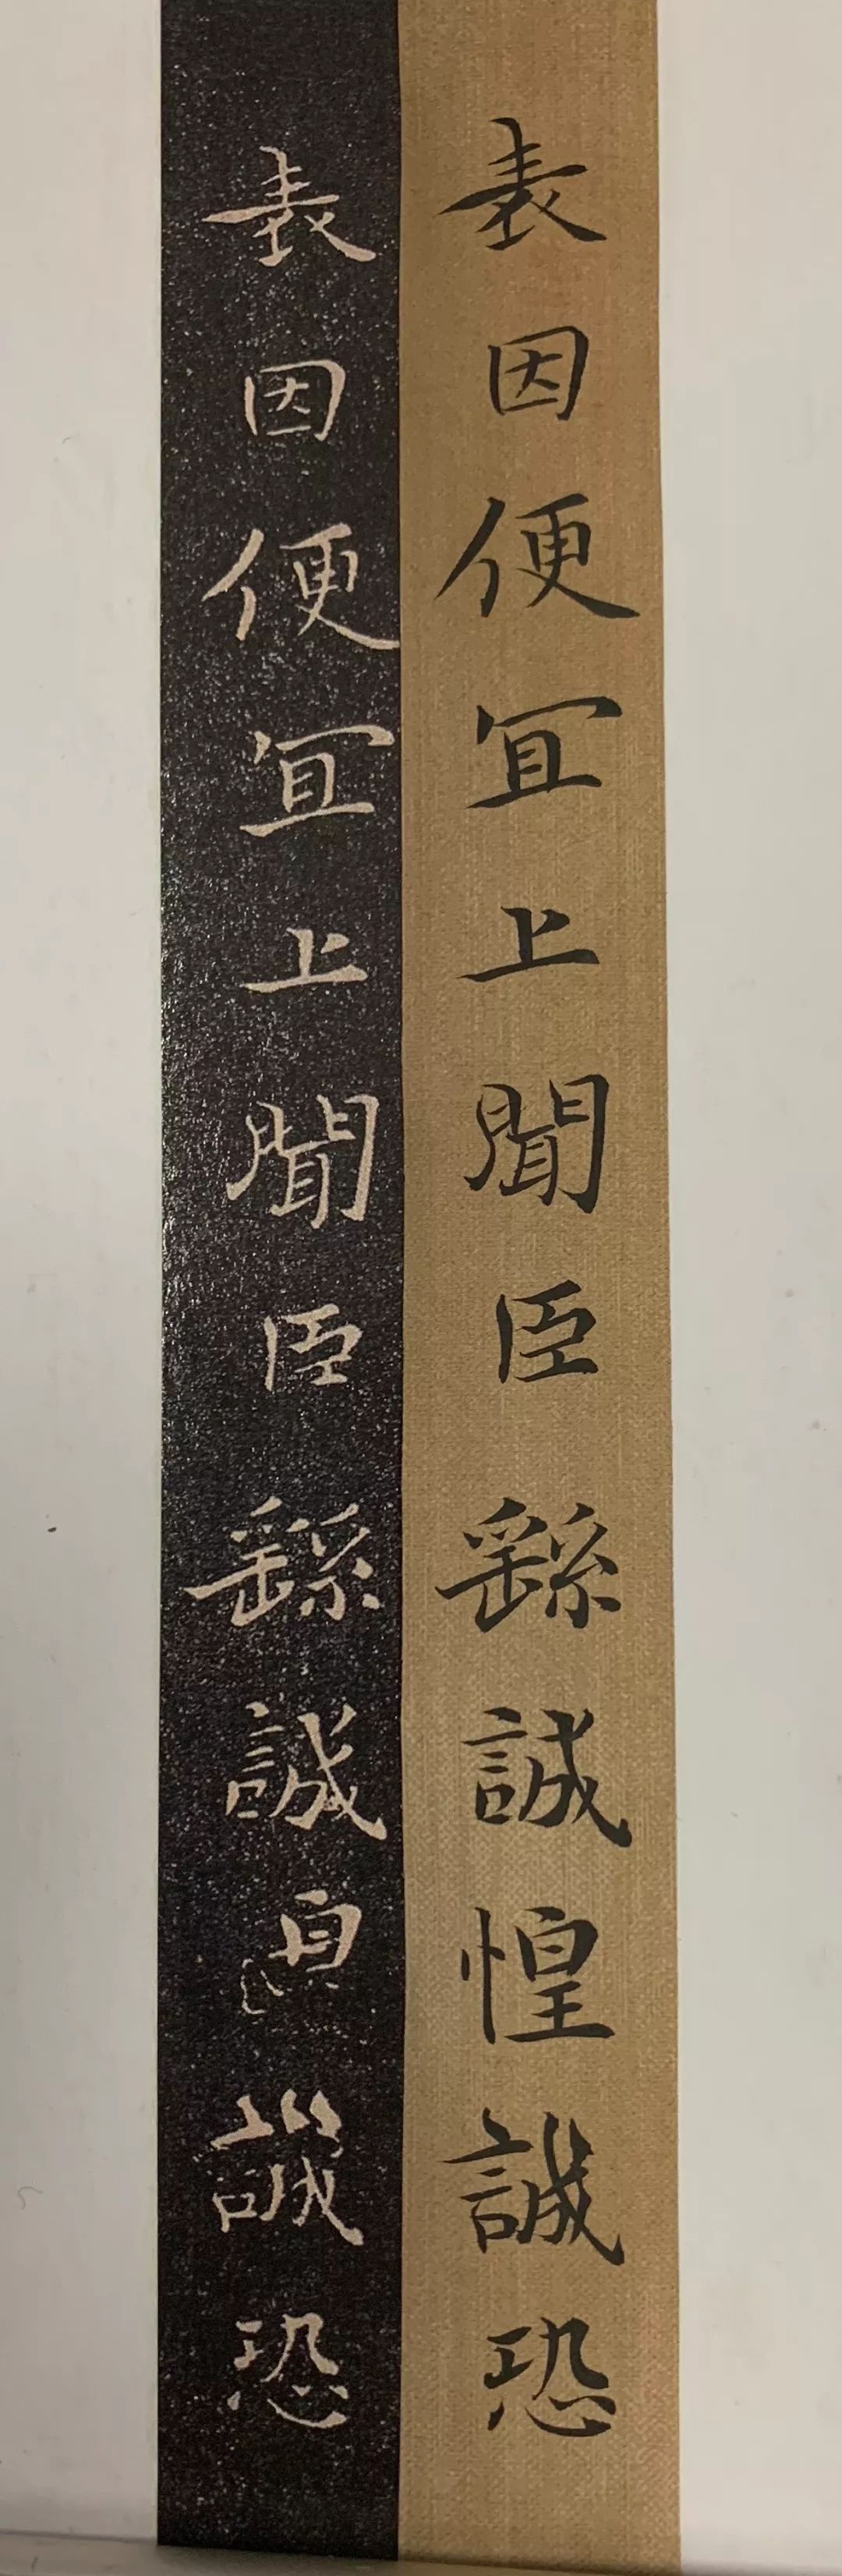 表因便冝上聞臣繇誠惶誠恐
表因便冝上聞臣繇誠誠恐